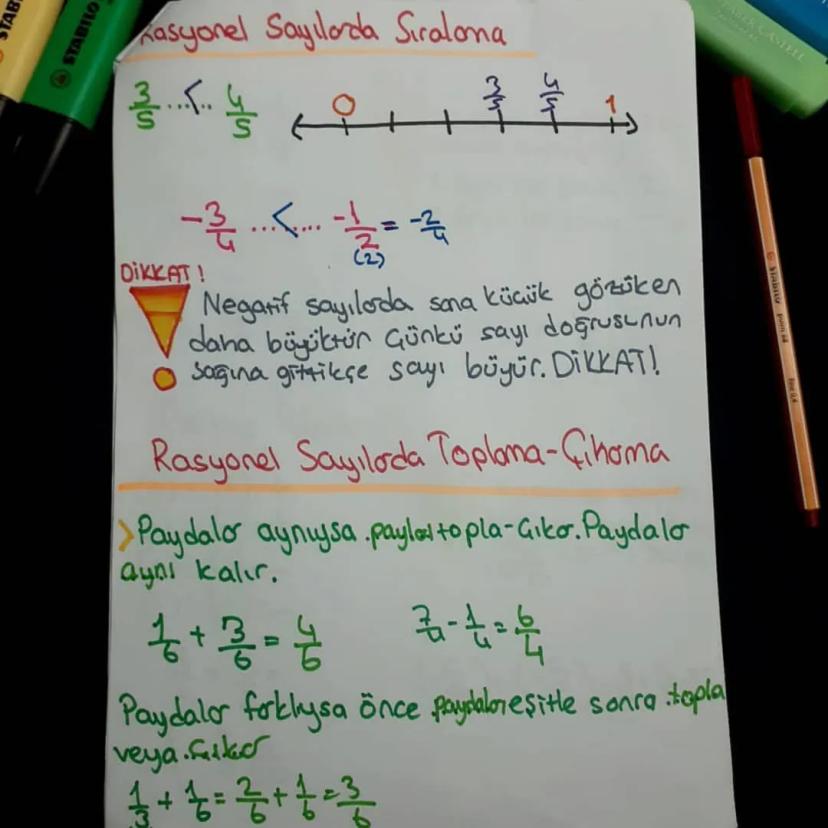 Rasyonel Sayılarda Sıralama
3/5 ...<.. 4/5
0 3/5 4/5 1
-3/4 ...<... -1/2 = -2/4
(2)
DİKKAT!
Negatif sayılarda sana küçük gözüken
daha büyüktür Çünkü sayı doğrusunun
sağına gittikçe sayı büyür. DİKKAT!
Rasyonel Sayılarda Toplama-Çıkarma
Paydalar aynıysa payları topla-Çıkar. Paydalar
aynı kalır.
1/6 + 3/6 = 4/6 7/4 - 1/4 = 6/4
Paydalar farklıysa önce paydaları eşitle sonra topla
veya Çıkar
1/3 + 1/6 = 2/6 + 1/6 = 3/6
STABILO